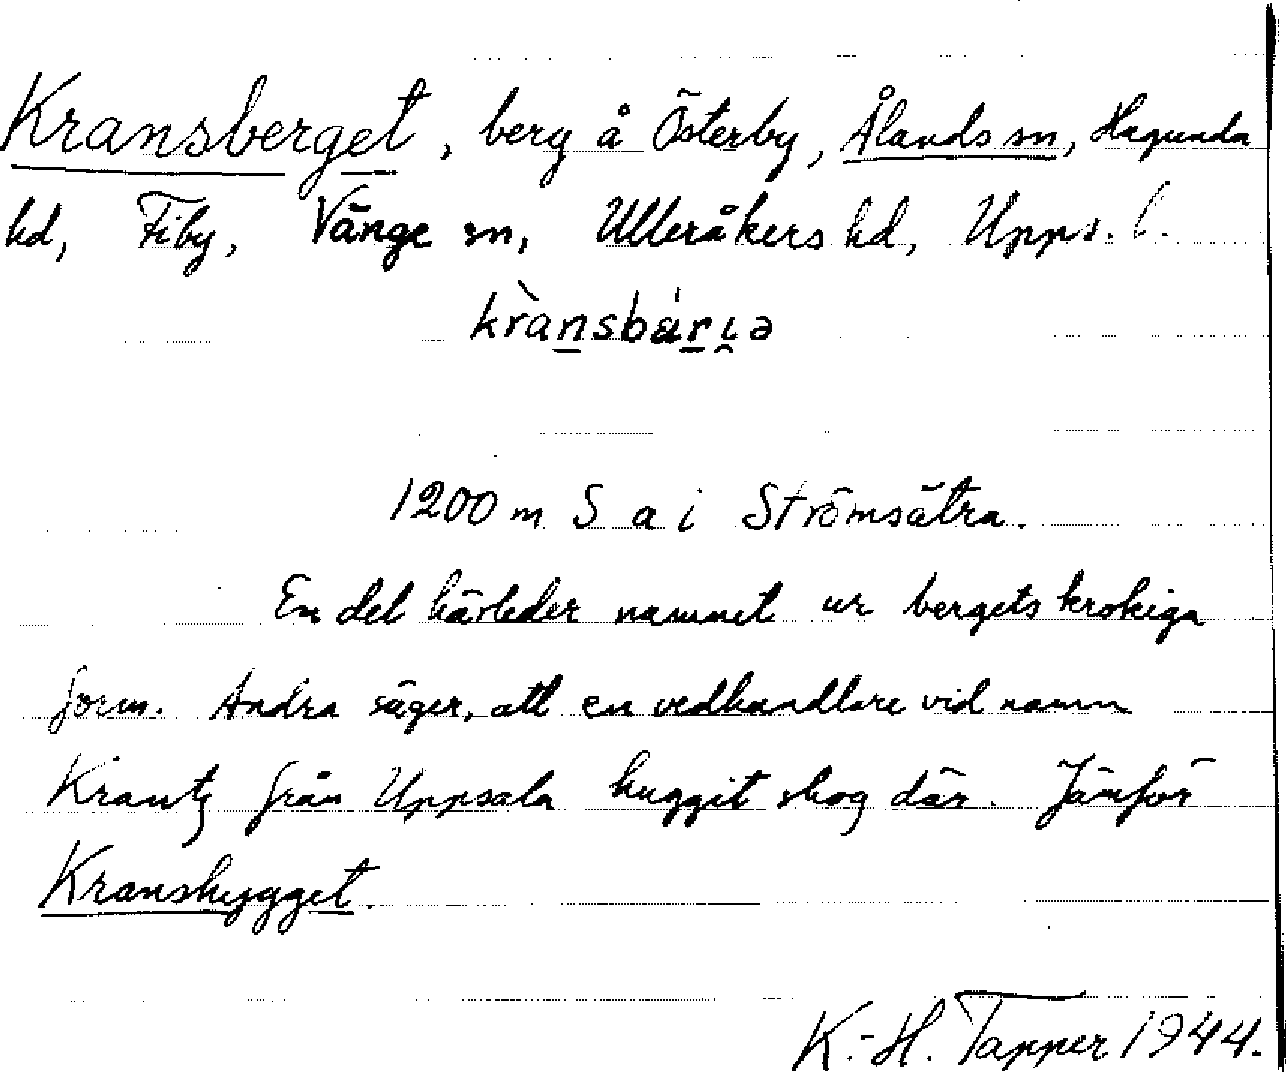 Kransberget, berg å Österby, Ålands sn, Hagunda
hd, Fiby, Vänge sn, Ulleråkers hd, Upps. l.
krànsbár̲i̯ə
1200 m S a i Strömsätra.
En del härleder namnet ur bergets krokiga
form. Andra säger, att en vedhandlare vid namn
Krantz från Uppsala huggit skog där. Jämför
Kranshygget.
K.-H. Tapper 1944.